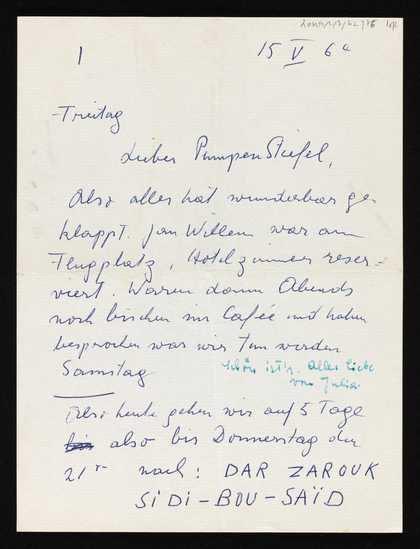 1
15 V 64
Freitag
Lieber PumpenStiefel,
Also alles hat wunderbar ge
klappt. Jan Willem war am
Flugplatz, Hotelzimmer reser-
viert. Waren dann Abends
noch bischen im Cafée und haben
besprochen was wir tun werden
Schön ist's. Alles Liebe
von Julia
Samstag
Also heute gehen wir auf 5 Tage
also bis Donnerstag den
21ten nach: DAR ZAROUK
SiDi-BOU-SAÏD